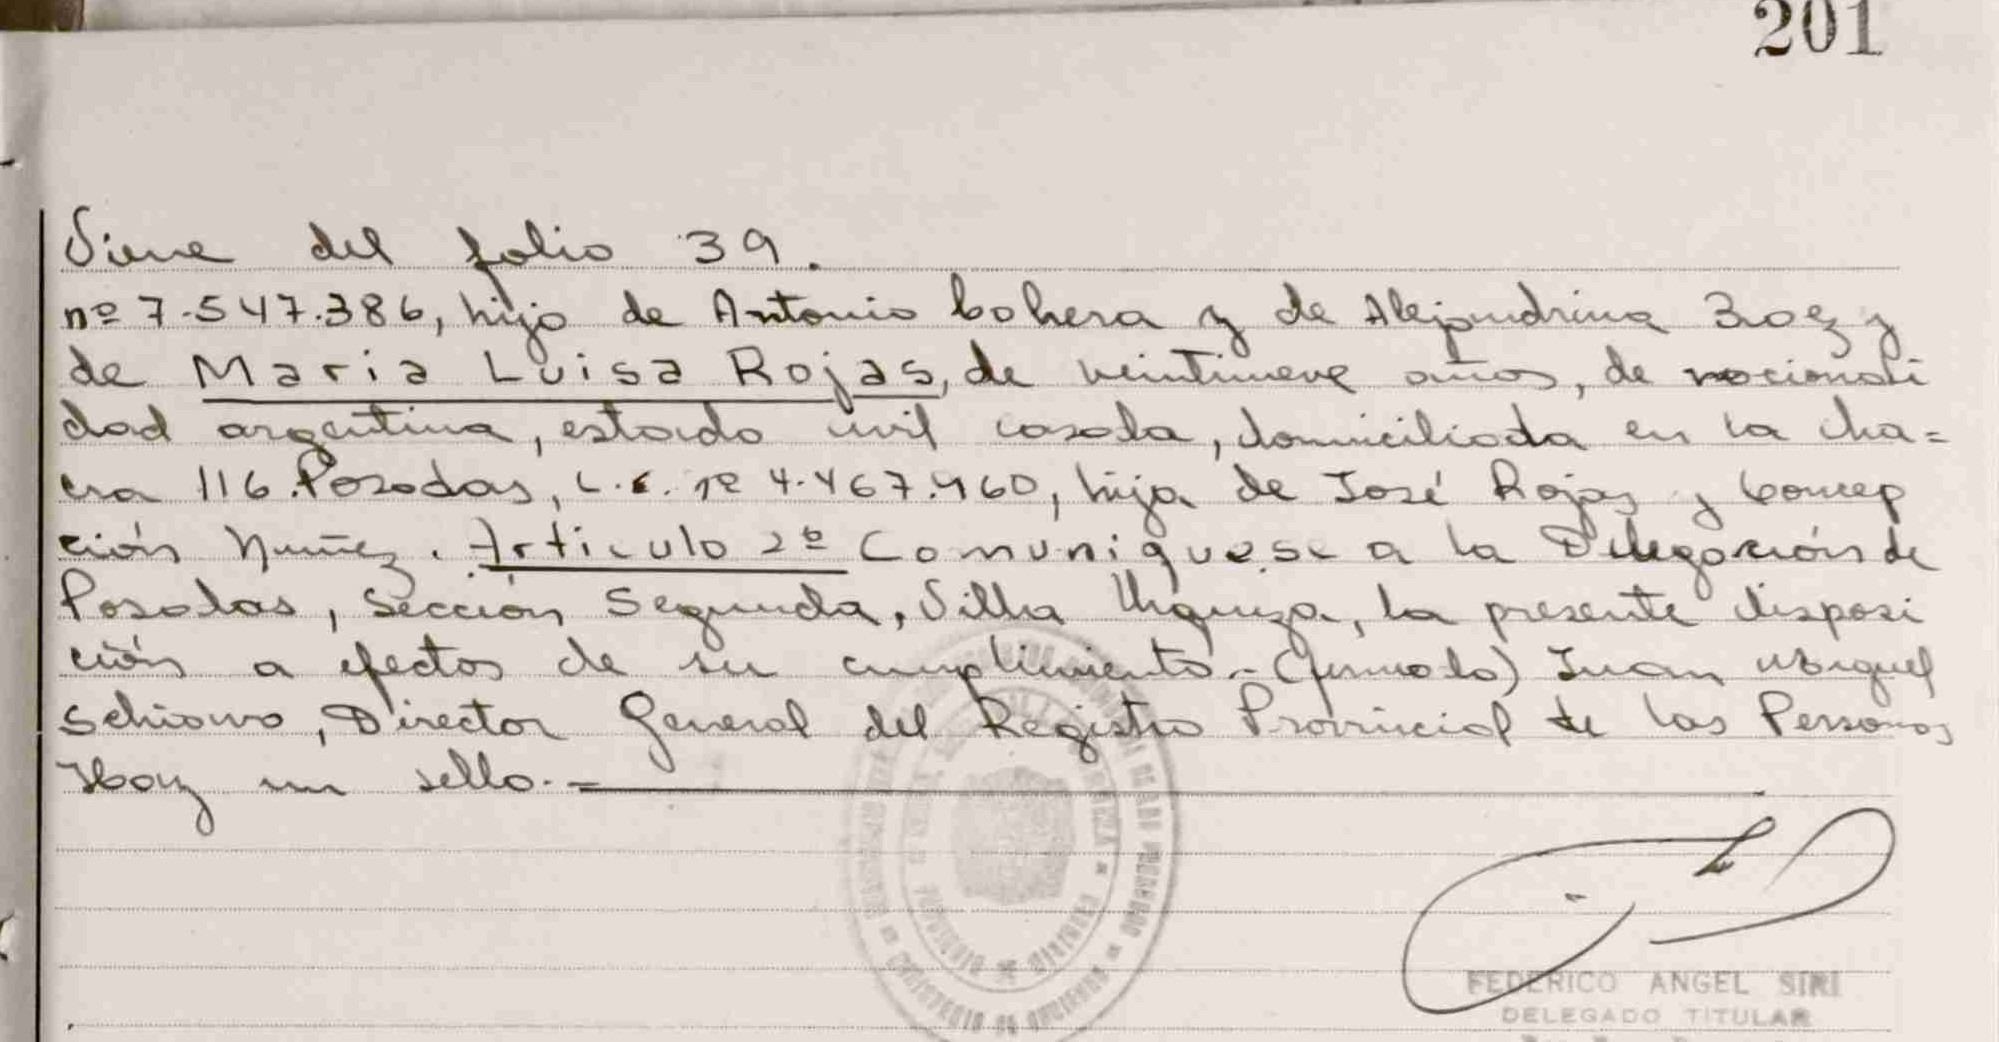 201
Viene del folio 39.
nº 7.547.386, hijo de Antonio Cohera y de Alejandrina y
de Maria Luisa Rojas, de veintinueve años, de nacionali
dad argentina, estado civil casada, domiciliada en la cha=
cra 116.Posadas, L.C. nº 4.467.960, hija de José Rojas y Concep
ción Nuñez. Articulo 2º Comuniquese a la Delegación de
Posadas, Sección Segunda, Villa Urquiza, la presente disposi
ción a efectos de su cumplimiento.-(firmado) Juan Miguel
Schiavo, Director General del Registro Provincial de las Personas
Hay un sello.-
FEDERICO ANGEL SIRI
DELEGADO TITULAR